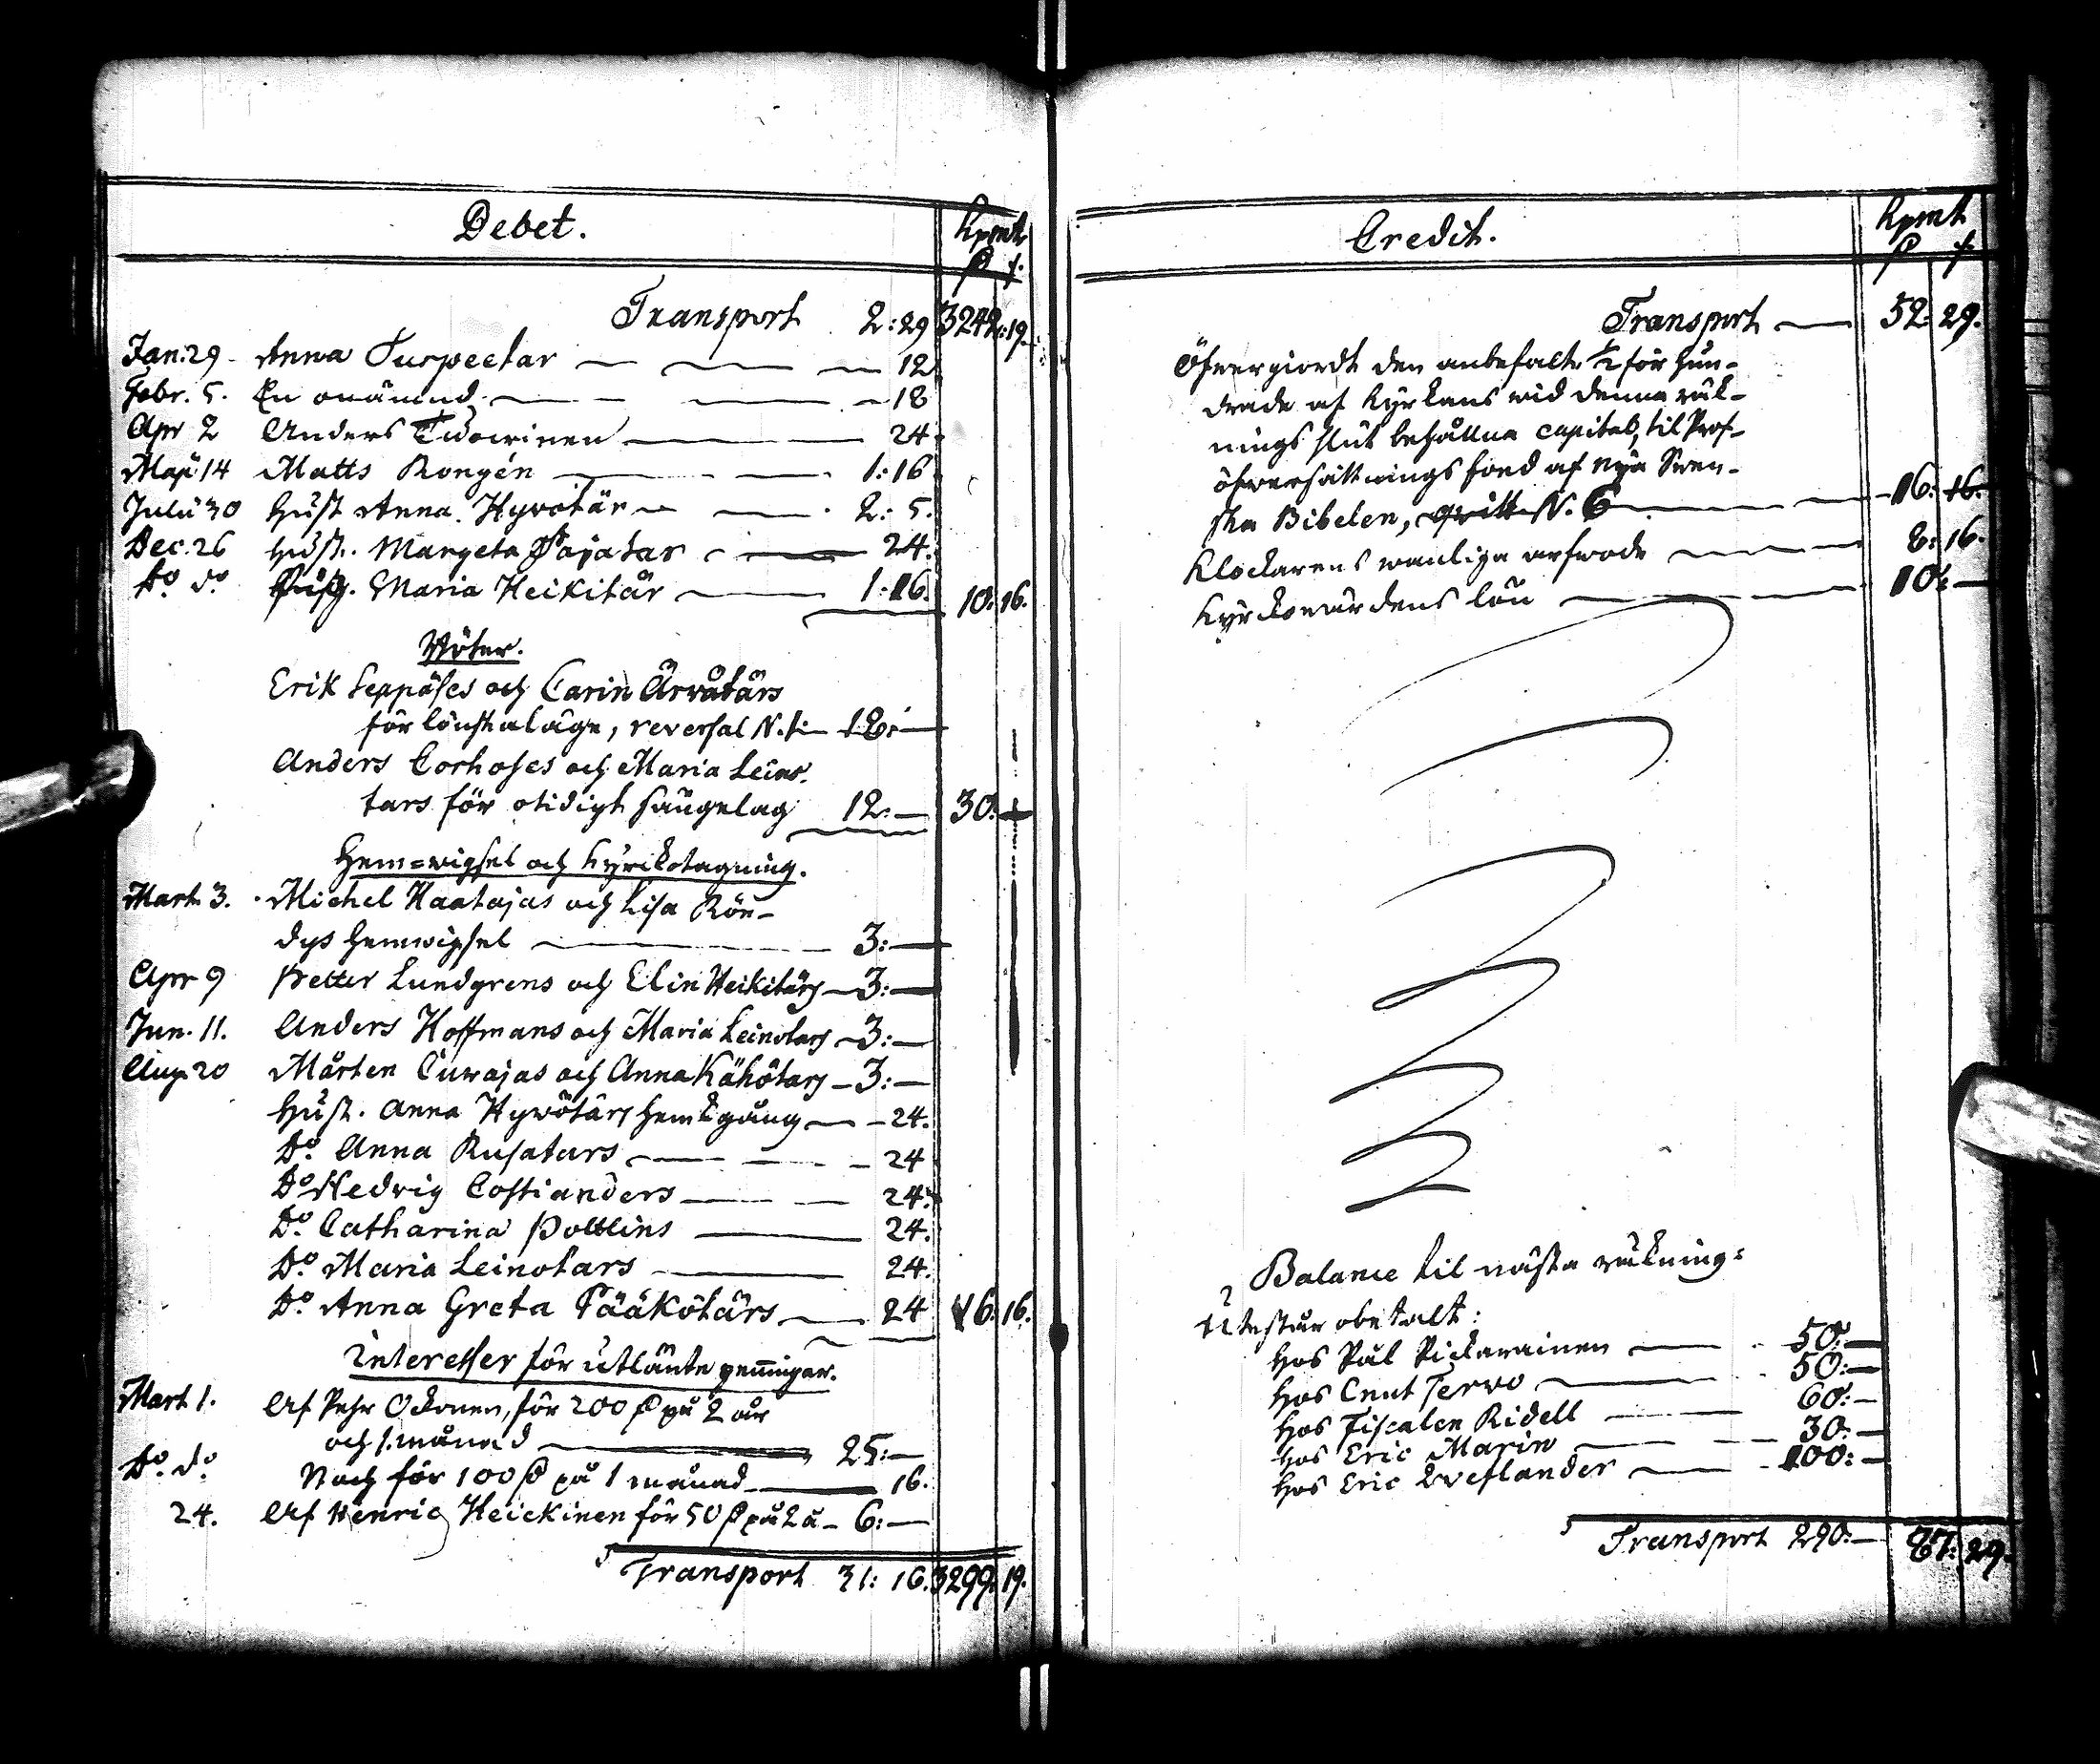 Debet.
Kpmt
Transport 2:29 3242:19.
Jan: 29. Anna Turpeetar 12
Febr. 5. En onämnd 18
Apr 2 Anders Tidowinen 24
Maji 14 Matts Rongén 1:16
Julii 30 Hust Anna Hyvötär 2:5.
Dec: 26 Hust. Margeta Pajatar 24.
Do. do. Maria Heikitär 1:16. 10:16.
Böter.
Erik Seppäses och Carin Ärvätärs
för lönskaläge, reversal N.1: 18:—
Anders Corhoses och Maria Leino-
tars för otidigt sängelag 12:— 30:—
Hem=wigsel och Kyrkotagning.
Mart. 3. Michel Haatajas och Lisa Rön-
dys hemwigsel 3:—
Apr 9 Petter Lundgrens och Elin Heikitärs 3:—
Jun. 11. Anders Hoffmans och Maria Leinotars 3:—
Aug. 20 Mårten Cuwajas och Anna Kähötars 3:—
Hust. Anna Hywötärs Hemkgång 24.
Do. Anna Rusatars 24
Do Hedvig Costianders 24:
Do. Catharina Poltlins 24.
Do. Maria Leinotars 24.
Do. Anna Greta Pääkötärs 24 16:16.
Interesser för utlänte penningar.
Mart 1. Af Pehr Ockonen, för 200 på 2 år
och 1. månad 25:—
Do. do. Noch för 100 på 1 månad 16.
24. Af Henric Heickinen för 50 på 2 å 6:—
Transport 31:16. 3299:19.
Credit.
Kpmt
Transport 52:29.
Öfvergiordt den anbefalte 1/2 för hun-
drade af Kyrkans wid denna räk-
nings slut behållna capital, til Prof-
öfversättnings fond af nya Swen-
ska Bibelen, qvitt N. 6 16:16.
Klockarens wanliga arfwode 8:16.
Kyrckowärdens lön 10:—
Balance til nästa räkning:
Utestår obetalt:
Hos Pål Pickarainen 50:—
Hos Cnut Tervo 50:—
Hos Fiscalen Ridell 60:—
Hos Eric Marin 30:—
Hos Eric Weflander 100:—
Transport 290:— 87:29.